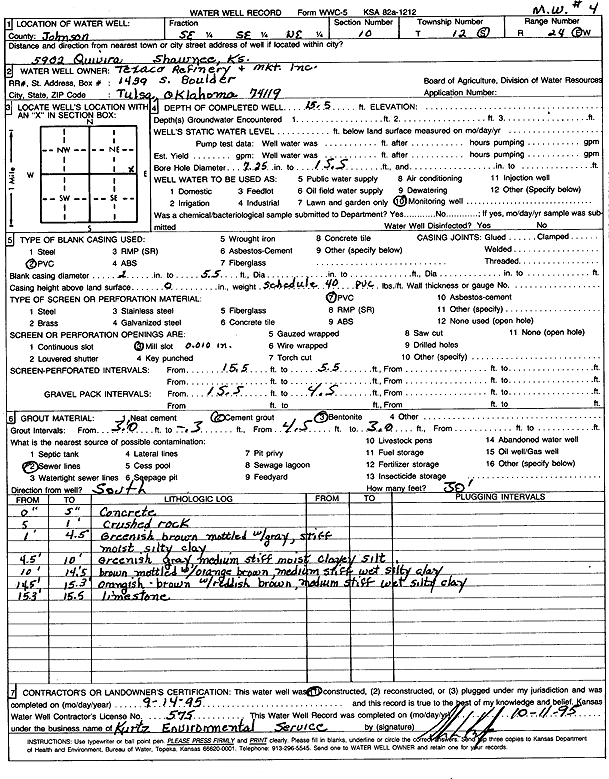 M.W. # 4
WATER WELL RECORD Form WWC-5 KSA 82a-1212
1 LOCATION OF WATER WELL: Fraction Section Number Township Number Range Number
County: Johnson SE ¼ SE ¼ NE ¼ 10 T 12 S R 24 E/W
Distance and direction from nearest town or city street address of well if located within city?
5902 Quivira Shawnee, Ks.
2 WATER WELL OWNER: Texaco Refinery + mkt. Inc.
RR#, St. Address, Box # : 1439 S. Boulder Board of Agriculture, Division of Water Resources
City, State, ZIP Code : Tulsa, Oklahoma 74119 Application Number:
3 LOCATE WELL'S LOCATION WITH AN "X" IN SECTION BOX:
N
NW NE
W X E
SW SE
S
1 Mile
4 DEPTH OF COMPLETED WELL 15.5 ft. ELEVATION:
Depth(s) Groundwater Encountered 1. ft. 2. ft. 3. ft.
WELL'S STATIC WATER LEVEL ft. below land surface measured on mo/day/yr
Pump test data: Well water was ft. after hours pumping gpm
Est. Yield gpm: Well water was ft. after hours pumping gpm
Bore Hole Diameter 7.25 in. to 15.5 ft., and in. to ft.
WELL WATER TO BE USED AS: 5 Public water supply 8 Air conditioning 11 Injection well
1 Domestic 3 Feedlot 6 Oil field water supply 9 Dewatering 12 Other (Specify below)
2 Irrigation 4 Industrial 7 Lawn and garden only 10 Monitoring well
Was a chemical/bacteriological sample submitted to Department? Yes No ; If yes, mo/day/yr sample was sub-
mitted Water Well Disinfected? Yes No
5 TYPE OF BLANK CASING USED: 5 Wrought iron 8 Concrete tile CASING JOINTS: Glued Clamped
1 Steel 3 RMP (SR) 6 Asbestos-Cement 9 Other (specify below) Welded
2 PVC 4 ABS 7 Fiberglass Threaded
Blank casing diameter 2 in. to 5.5 ft., Dia in. to ft., Dia in. to ft.
Casing height above land surface 0 in., weight schedule 40 PVC lbs./ft. Wall thickness or gauge No.
TYPE OF SCREEN OR PERFORATION MATERIAL: 7 PVC 10 Asbestos-cement
1 Steel 3 Stainless steel 5 Fiberglass 8 RMP (SR) 11 Other (specify)
2 Brass 4 Galvanized steel 6 Concrete tile 9 ABS 12 None used (open hole)
SCREEN OR PERFORATION OPENINGS ARE: 5 Gauzed wrapped 8 Saw cut 11 None (open hole)
1 Continuous slot 3 Mill slot 0.010 in. 6 Wire wrapped 9 Drilled holes
2 Louvered shutter 4 Key punched 7 Torch cut 10 Other (specify)
SCREEN-PERFORATED INTERVALS: From 15.5 ft. to 5.5 ft., From ft. to ft.
From ft. to ft., From ft. to ft.
GRAVEL PACK INTERVALS: From 15.5 ft. to 4.5 ft., From ft. to ft.
From ft. to ft., From ft. to ft.
6 GROUT MATERIAL: 1 Neat cement 2 Cement grout 3 Bentonite 4 Other
Grout Intervals: From 3.0 ft. to .3 ft., From 4.5 ft. to 3.0 ft., From ft. to ft.
What is the nearest source of possible contamination: 10 Livestock pens 14 Abandoned water well
1 Septic tank 4 Lateral lines 7 Pit privy 11 Fuel storage 15 Oil well/Gas well
2 Sewer lines 5 Cess pool 8 Sewage lagoon 12 Fertilizer storage 16 Other (specify below)
3 Watertight sewer lines 6 Seepage pit 9 Feedyard 13 Insecticide storage
Direction from well? South How many feet? 30'
FROM TO LITHOLOGIC LOG FROM TO PLUGGING INTERVALS
0" 5" Concrete
5 1' Crushed rock
1' 4.5' Greenish brown mottled w/gray, stiff
moist silty clay
4.5' 10' Greenish gray, medium stiff moist clayey silt
10' 14.5 brown mottled w/orange brown, medium stiff wet silty clay
14.5' 15.3' orangish-brown w/reddish brown, medium stiff wet silty clay
15.3' 15.5 limestone
7 CONTRACTOR'S OR LANDOWNER'S CERTIFICATION: This water well was (1) constructed, (2) reconstructed, or (3) plugged under my jurisdiction and was
completed on (mo/day/year) 9-14-95 and this record is true to the best of my knowledge and belief. Kansas
Water Well Contractor's License No. 575 This Water Well Record was completed on (mo/day/yr) 10-11-95
under the business name of Kurtz Environmental Service by (signature)
INSTRUCTIONS: Use typewriter or ball point pen. PLEASE PRESS FIRMLY and PRINT clearly. Please fill in blanks, underline or circle the correct answers. Send top three copies to Kansas Department
of Health and Environment, Bureau of Water, Topeka, Kansas 66620-0001. Telephone: 913-296-5545. Send one to WATER WELL OWNER and retain one for your records.